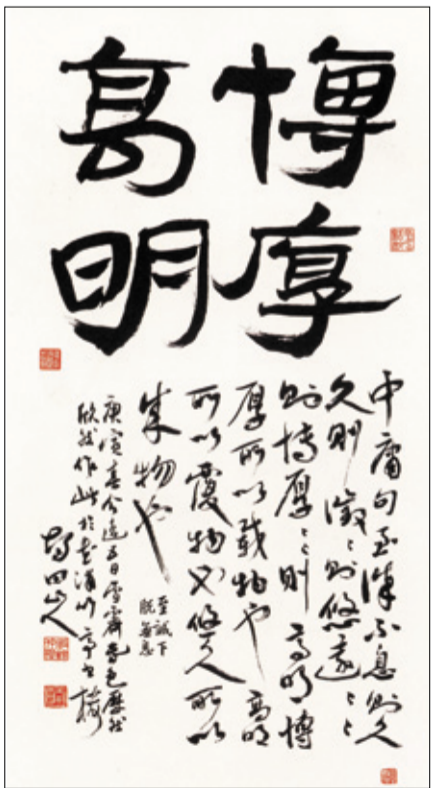 博厚
高明
中庸句至誠不息則久
久則徵〻則悠遠〻〻
則博厚〻〻則高明博
厚所以載物也高明
所以覆物也悠久所以
成物也
至誠下
脫無息
庚寅春分過五日雪霽春色歷然
欣然作此於